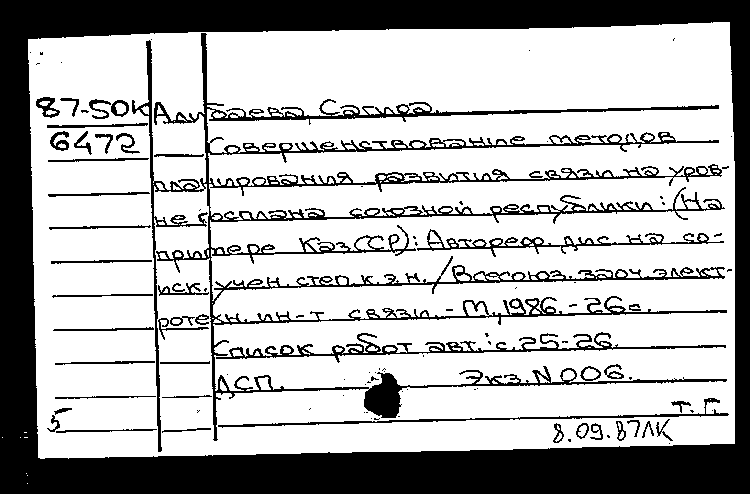 87-50К Алибаева, Сагира.
6472 Совершенствование методов
планирования развития связи на уров-
не госплана союзной республики: (На
примере КазССР): Автореф. дис. на со-
иск. учен. степ. к.э.н. / Всесоюз. заоч. элект-
ротехн. ин-т связи. - М., 1986. - 26с.
Список работ авт.: с. 25-26.
ДСП. Экз. N 006.
5 т. Г.
8.09.87ЛК